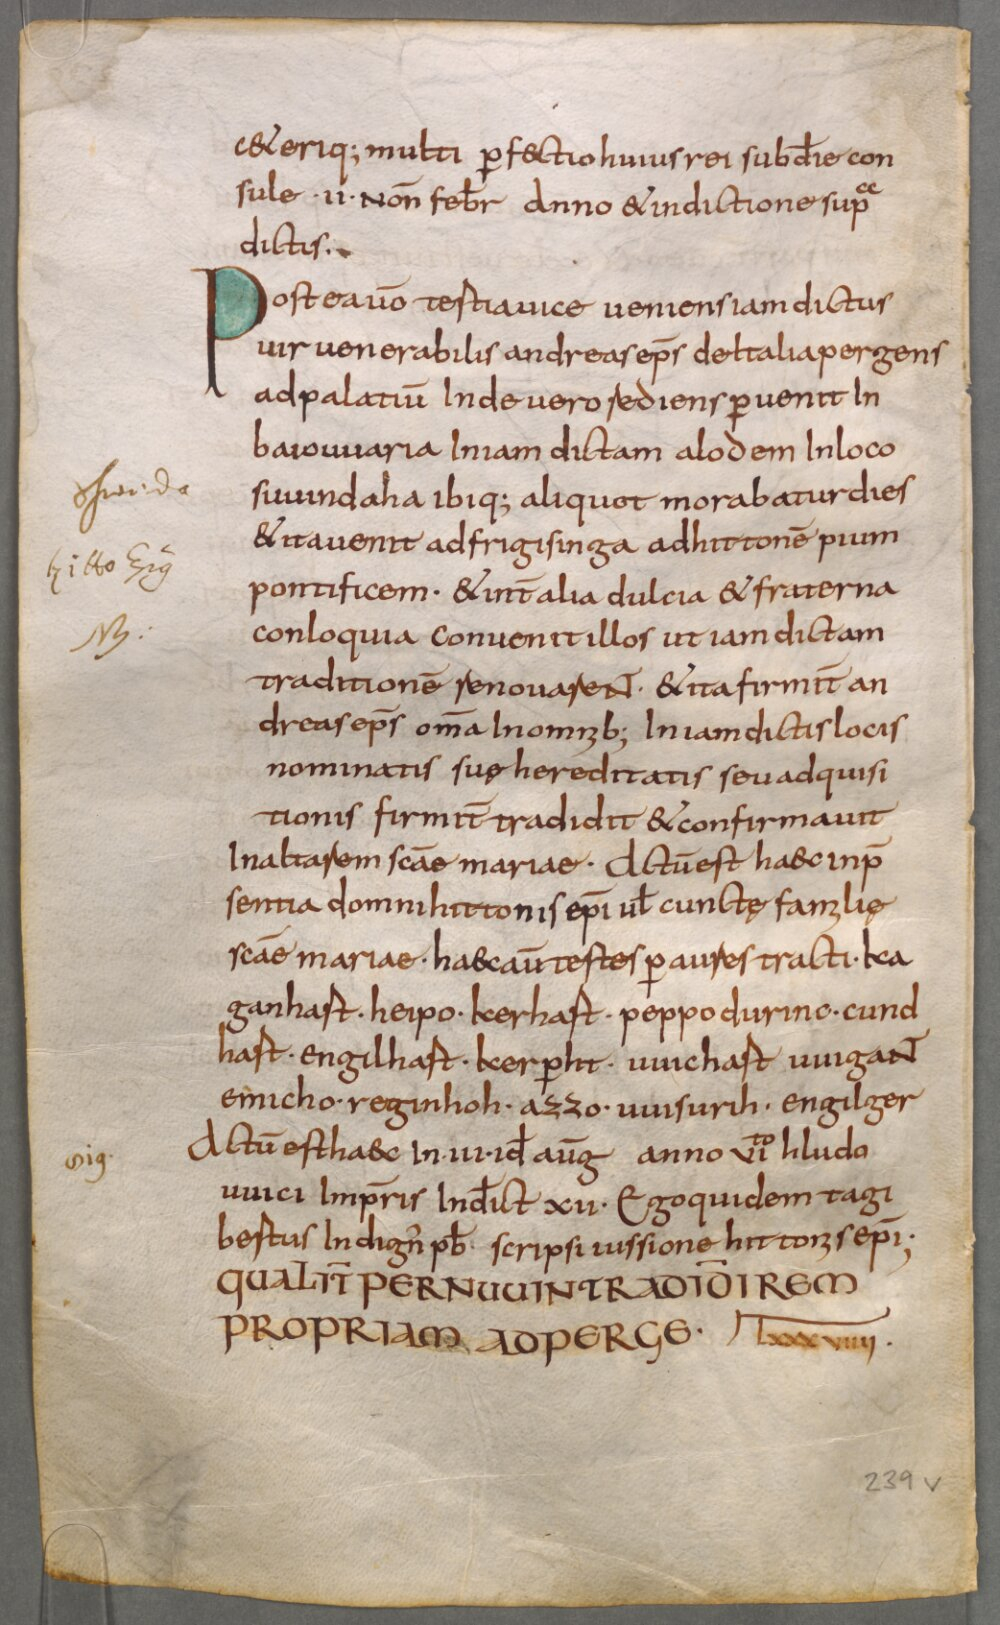 c&eriq; multi p̱ f&ctio huius rei sub d̄ie con
sule · ii · Noñ feb̄r Anno & indictione sup̄ ee
dictis:
Postea uō testiauice ueniens iam dictus
uir uenerabilis andreas ep̄s de Italia pergens
ad palatiū Inde uero rediens p̱uenit In
baiouuaria In iam dictam alodem In loco
suuindaha ibiq; aliquot morabatur dies
& ita uenit ad frigisinga ad hittonē pium
pontificem · & int̄ alia dulcia & fraterna
conloquia conuenit illos ut iam dictam
traditionē renouareNT · & ita firmit̄ an
dreas ep̄s om̄a In omnib; In iam dictis locis
nominatis suę hereditatis seu adquisi
tionis firmit̄ tradidit & confirmauit
In altarem sc̄ae mariae · Actū est haec in p̄
sentia domni hittonis ep̄i ul̄ cunctę familię
sc̄ae mariae · haec aū testes p̱ aures tracti · kea
ganhast · heipo · kerhast · peppo durinc · cund
hast · engilhast · kerp̱ht · uuichast uuigaNT
emicho · reginhoh · azzo · uuisurih · engilger
Actū est haec In · iii · id̄ aūg anno vi to hludo
uuici Imp̄ris Ind̄ict xii · Ego quidem tagi
bertus Indign̄ pb̄ scripsi iussione hittonis ep̄i;
QUALIT̄ PERNUUIN TRADIDI REM
PROPRIAM AD PERGE · Lxxxviiii ·
hitto Epg̃
NB:
sig.
239 v